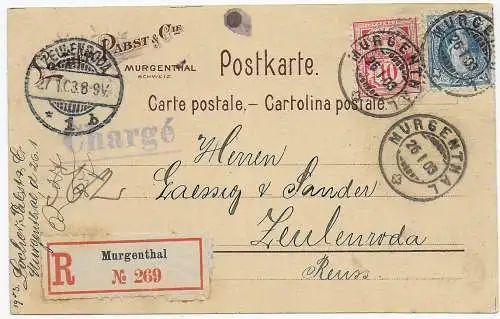 PABST & CIE
MURGENTHAL
SCHWEIZ
Postkarte.
Carte postale. — Cartolina postale.
ZEULENRODA
27.1.03.8-9V.
* 1 b
Chargé
MURGENTHAL
26.I.03
10
MURGENTHAL
26.I.03
MURGENTHAL
26.I.03
Herren
Laessig & Sander
Zeulenroda
Reuss.
R
Murgenthal
№ 269
Murgenthal d. 26.1